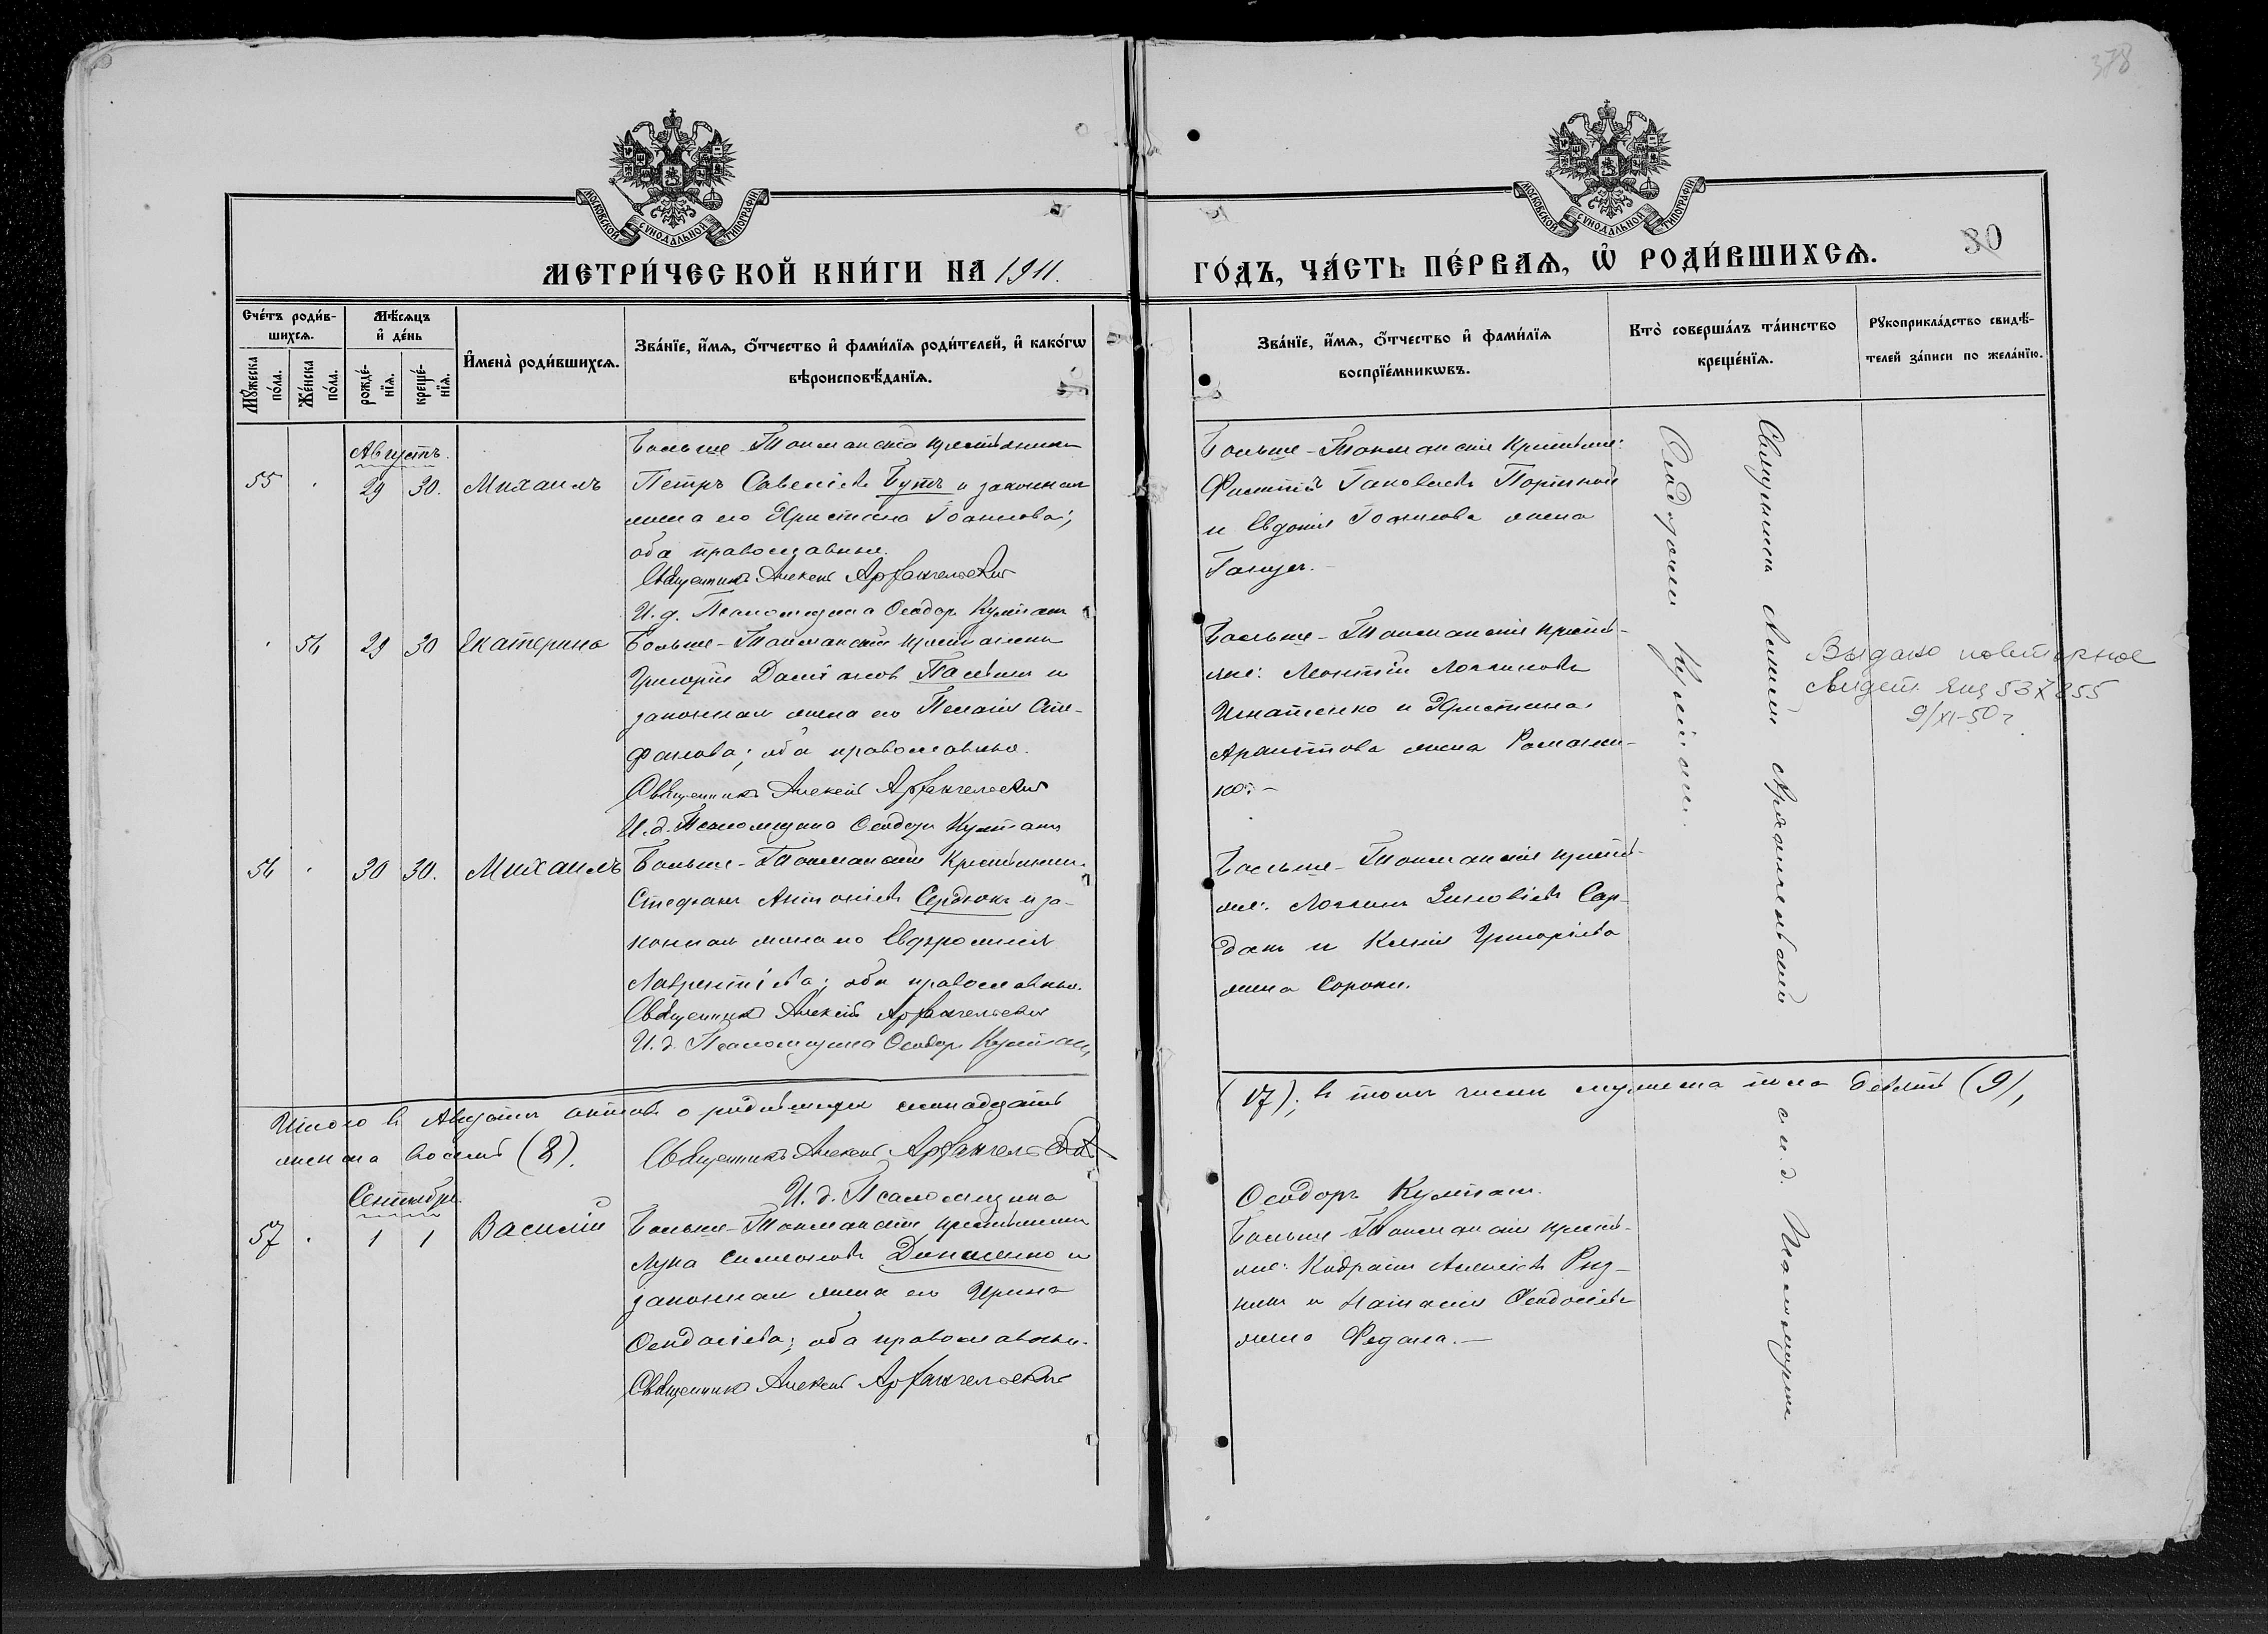 378
МОСКОВСКОЙ СУНОДАЛЬНОЙ ТИПОГРАФІИ
МОСКОВСКОЙ СУНОДАЛЬНОЙ ТИПОГРАФІИ
30
МЕТРИ́ЧЕСКОЙ КНИ́ГИ НА 1911.
ГО́ДЪ, ЧА́СТЬ ПЕ́РВАѦ, Ѡ҆ РОДИ́ВШИХСѦ.
Сче́тъ роди́в-
шихсѧ.
Мꙋ́жеска по́ла.
Же́нска по́ла.
Мѣ́сѧцъ
и҆ де́нь
рожде́-
нїѧ.
креще́-
нїѧ.
И҆мена̀ роди́вшихсѧ.
Зва́нїе, и҆́мѧ, ѻ҆́тчество и҆ фами́лїѧ роди́телей, и҆ како́гѡ
вѣроисповѣ́данїѧ.
Зва́нїе, и҆́мѧ, ѻ҆́тчество и҆ фами́лїѧ
воспрїе́мникѡвъ.
Кто̀ соверша́лъ та́инство
креще́нїѧ.
Рꙋкоприкла́дство свидѣ́-
телей за́писи по жела́нїю.
Августъ.
55 29 30. Михаилъ
Больше-Токмакскій крестьянинъ
Петръ Савельевъ Бутъ и законная
жена его Христина Іоаннова;
оба православные.
Священникъ Алексій Архангельскій
И. д. Псаломщика Ѳеодоръ Культанъ
Больше-Токмакскіе крестьяне:
Филиппъ Іаковлевъ
и Евдокія Іоаннова жена
56 29 30 Екатерина
Больше-Токмакскій крестьянинъ
Григорій Даміановъ и
законная жена его Пелагія Сте-
фанова; оба православные.
Священникъ Алексій Архангельскій
И. д. Псаломщика Ѳеодоръ Культанъ
Больше-Токмакскіе кресть-
яне: Леонтій Логгиновъ
Игнатенко и Христина
жена Романен-
ко. -
Выдано повторное
свидет. 537855
9/XI-50 г
56 30 30. Михаилъ
Больше-Токмакскій Крестьянинъ
Стефанъ Антоніевъ Сердюкъ и за-
конная жена его Евфросинія
Лаврентіева; оба православные.
Священникъ Алексій Архангельскій
И. д. Псаломщика Ѳеодоръ Культанъ
Больше-Токмакскіе кресть-
яне: Логгинъ Зиновіевъ
и Ксенія Григоріева
жена Сороки.
Священникъ Алексій Архангельскій
и и. д. Псаломщика
Ѳеодоръ Культанъ.
Итого въ Августѣ актовъ о родившихся семнадцать
(17); въ томъ числѣ мужеска пола девять (9),
женска восемь (8).
Священникъ Алексій Архангельскій
И. д. Псаломщика
Ѳеодоръ Культанъ.
Сентябрь.
57 1 1 Василій
Больше-Токмакскій крестьянинъ
Лука Симеоновъ и
законная жена его Ирина
Ѳеодосіева; оба православные.
Священникъ Алексій Архангельскій
Больше-Токмакскіе кресть-
яне: Кодратъ Алексіевъ Рез-
никъ и Ѳеодосіева
жена